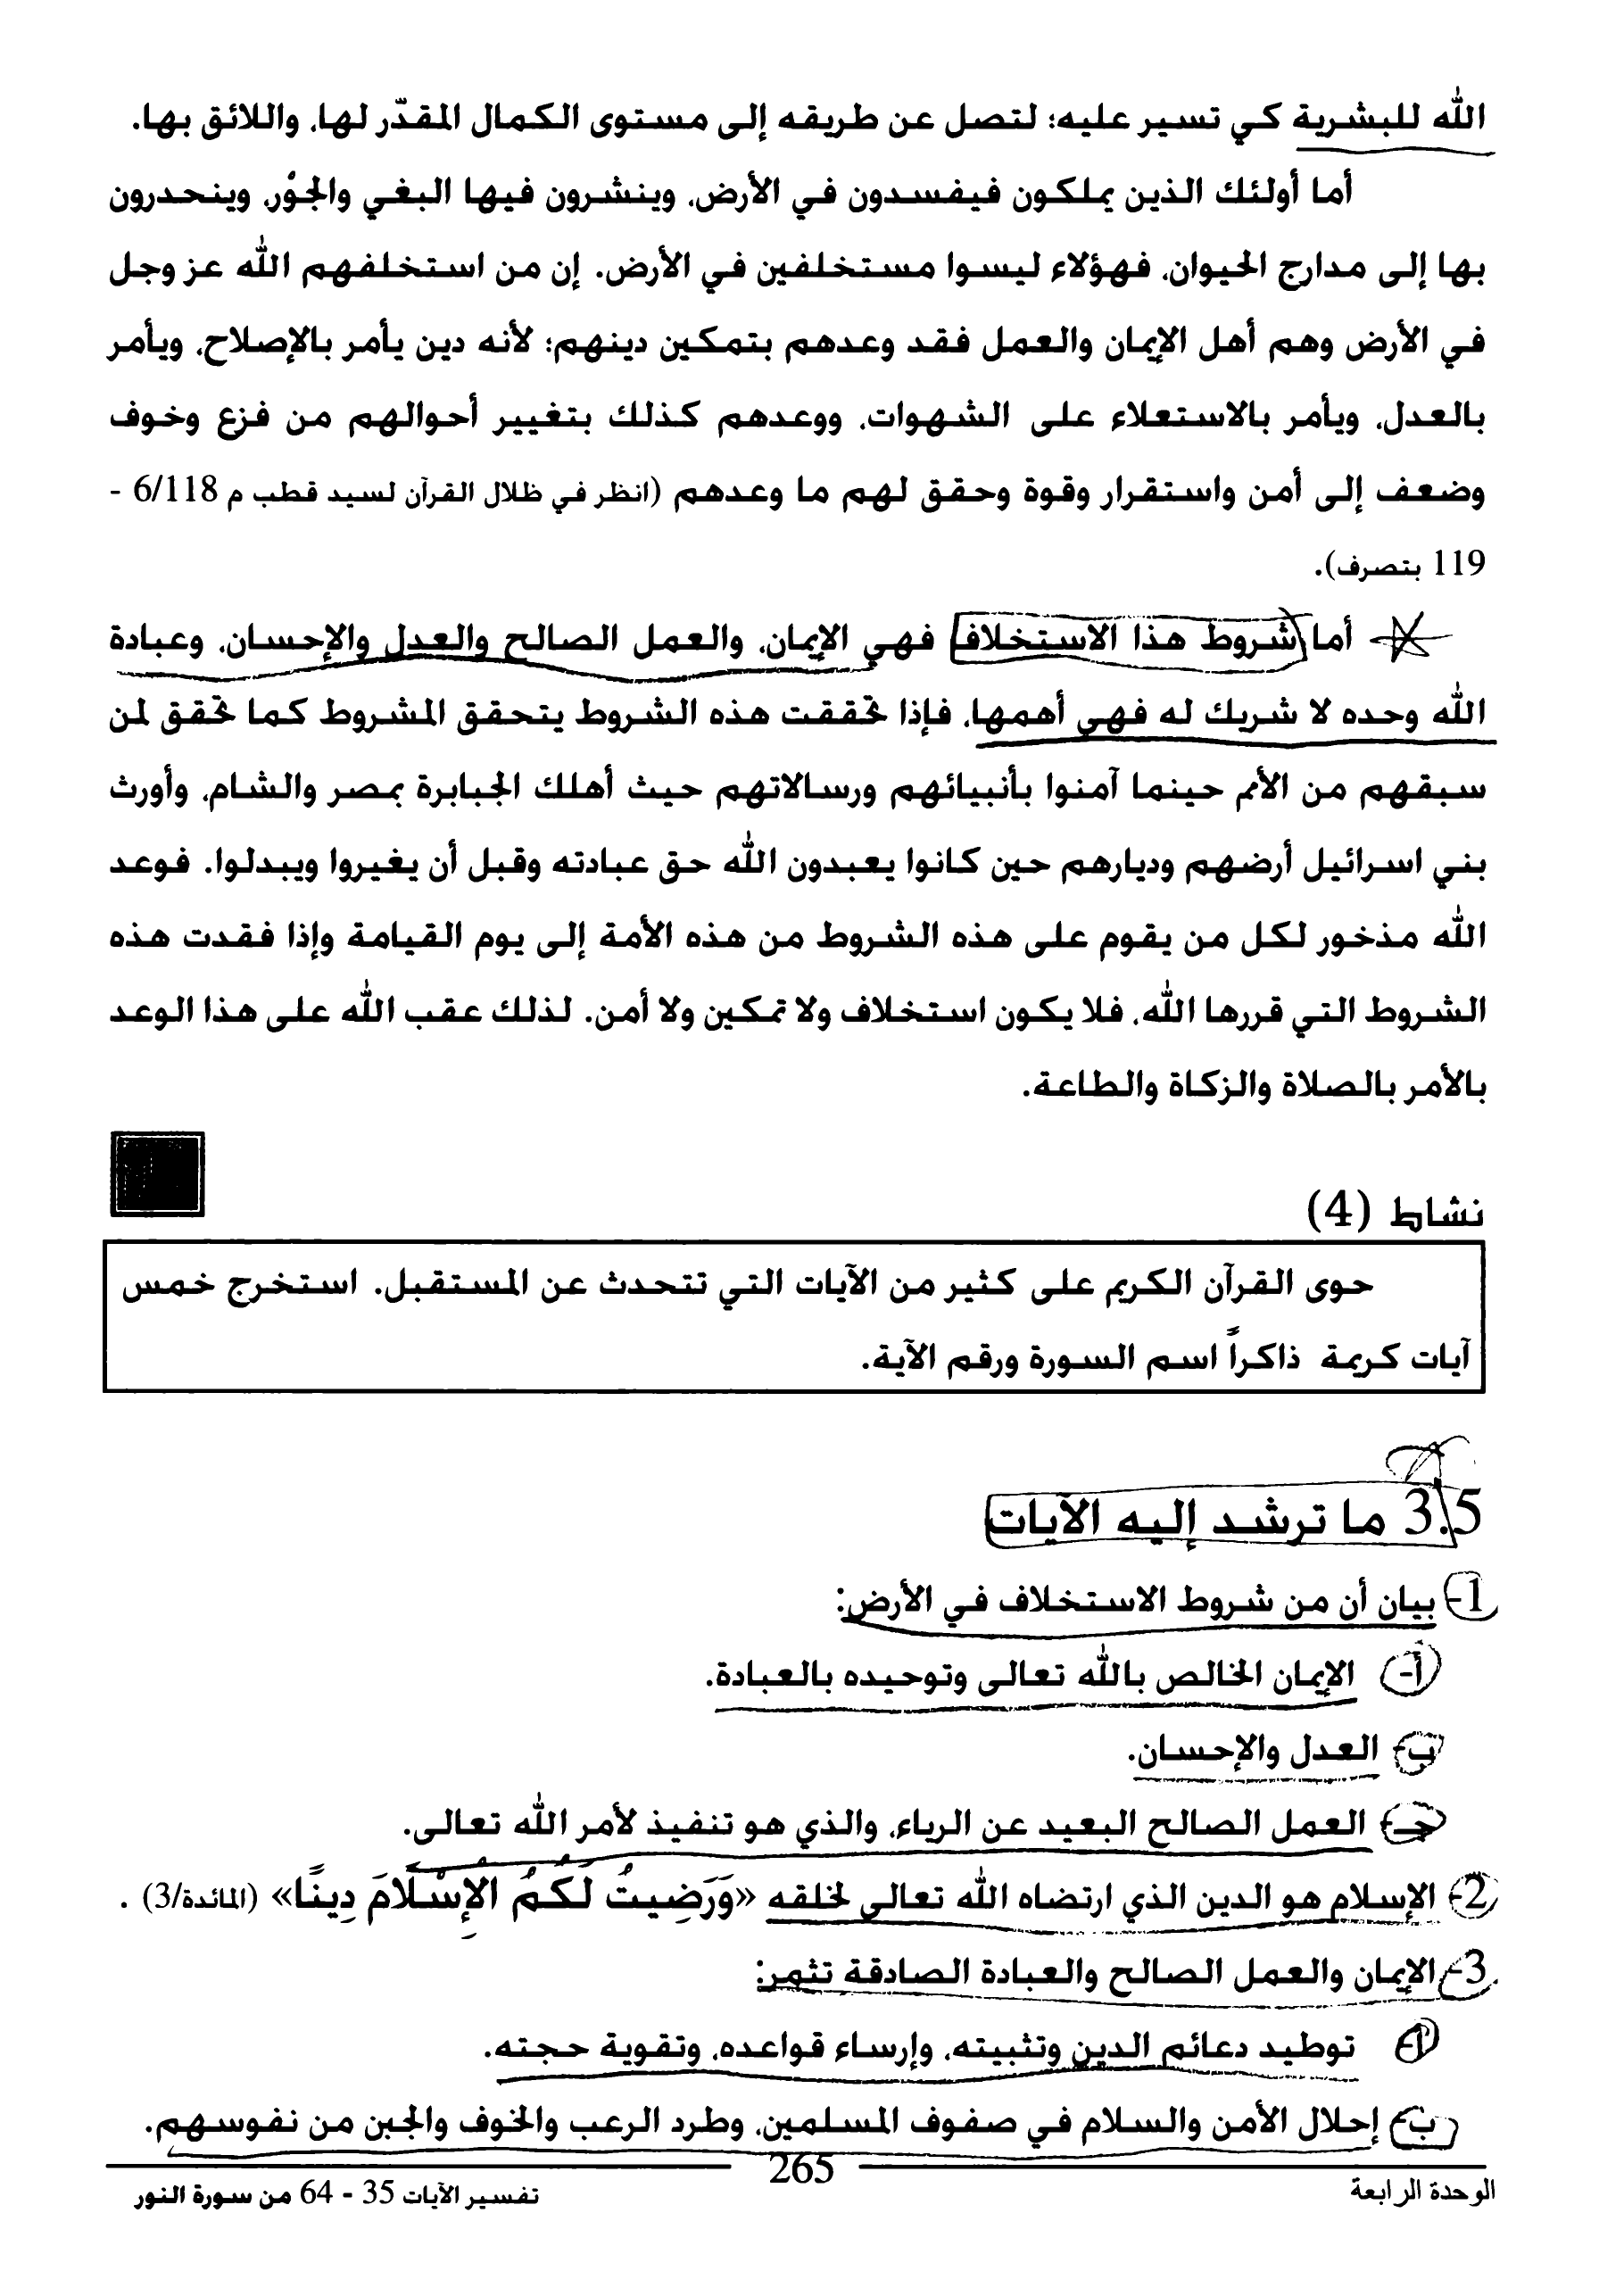 الله للبشرية كي تسير عليه؛ لتصل عن طريقه إلى مستوى الكمال المقدّر لها، واللائق بها.
أما أولئك الذين يملكون فيفسدون في الأرض، وينشرون فيها البغي والجوْر، وينحدرون
بها إلى مدارج الحيوان، فهؤلاء ليسوا مستخلفين في الأرض. إن من استخلفهم الله عز وجل
في الأرض وهم أهل الإيمان والعمل فقد وعدهم بتمكين دينهم؛ لأنه دين يأمر بالإصلاح، ويأمر
بالعدل، ويأمر بالاستعلاء على الشهوات، ووعدهم كذلك بتغيير أحوالهم من فزع وخوف
وضعف إلى أمن واستقرار وقوة وحقق لهم ما وعدهم (انظر في ظلال القرآن لسيد قطب م 6/118 -
119 بتصرف).
أما شروط هذا الاستخلاف فهي الإيمان، والعمل الصالح والعدل والإحسان، وعبادة
الله وحده لا شريك له فهي أهمها، فإذا تحققت هذه الشروط يتحقق المشروط كما تحقق لمن
سبقهم من الأمم حينما آمنوا بأنبيائهم ورسالاتهم حيث أهلك الجبابرة بمصر والشام، وأورث
بني اسرائيل أرضهم وديارهم حين كانوا يعبدون الله حق عبادته وقبل أن يغيروا ويبدلوا. فوعد
الله مذخور لكل من يقوم على هذه الشروط من هذه الأمة إلى يوم القيامة وإذا فقدت هذه
الشروط التي قررها الله، فلا يكون استخلاف ولا تمكين ولا أمن. لذلك عقب الله على هذا الوعد
بالأمر بالصلاة والزكاة والطاعة.
نشاط (4)
حوى القرآن الكريم على كثير من الآيات التي تتحدث عن المستقبل. استخرج خمس
آيات كريمة ذاكراً اسم السورة ورقم الآية.
3.5 ما ترشد إليه الآيات
1- بيان أن من شروط الاستخلاف في الأرض:
أ- الإيمان الخالص بالله تعالى وتوحيده بالعبادة.
ب- العدل والإحسان.
جـ- العمل الصالح البعيد عن الرياء، والذي هو تنفيذ لأمر الله تعالى.
2- الإسلام هو الدين الذي ارتضاه الله تعالى لخلقه «وَرَضِيتُ لَكُمُ الإِسْلَامَ دِينًا» (المائدة/3) .
3- الإيمان والعمل الصالح والعبادة الصادقة تثمر:
أ- توطيد دعائم الدين وتثبيته، وإرساء قواعده، وتقوية حجته.
ب- إحلال الأمن والسلام في صفوف المسلمين، وطرد الرعب والخوف والجبن من نفوسهم.
265
الوحدة الرابعة
تفسير الآيات 35 - 64 من سورة النور